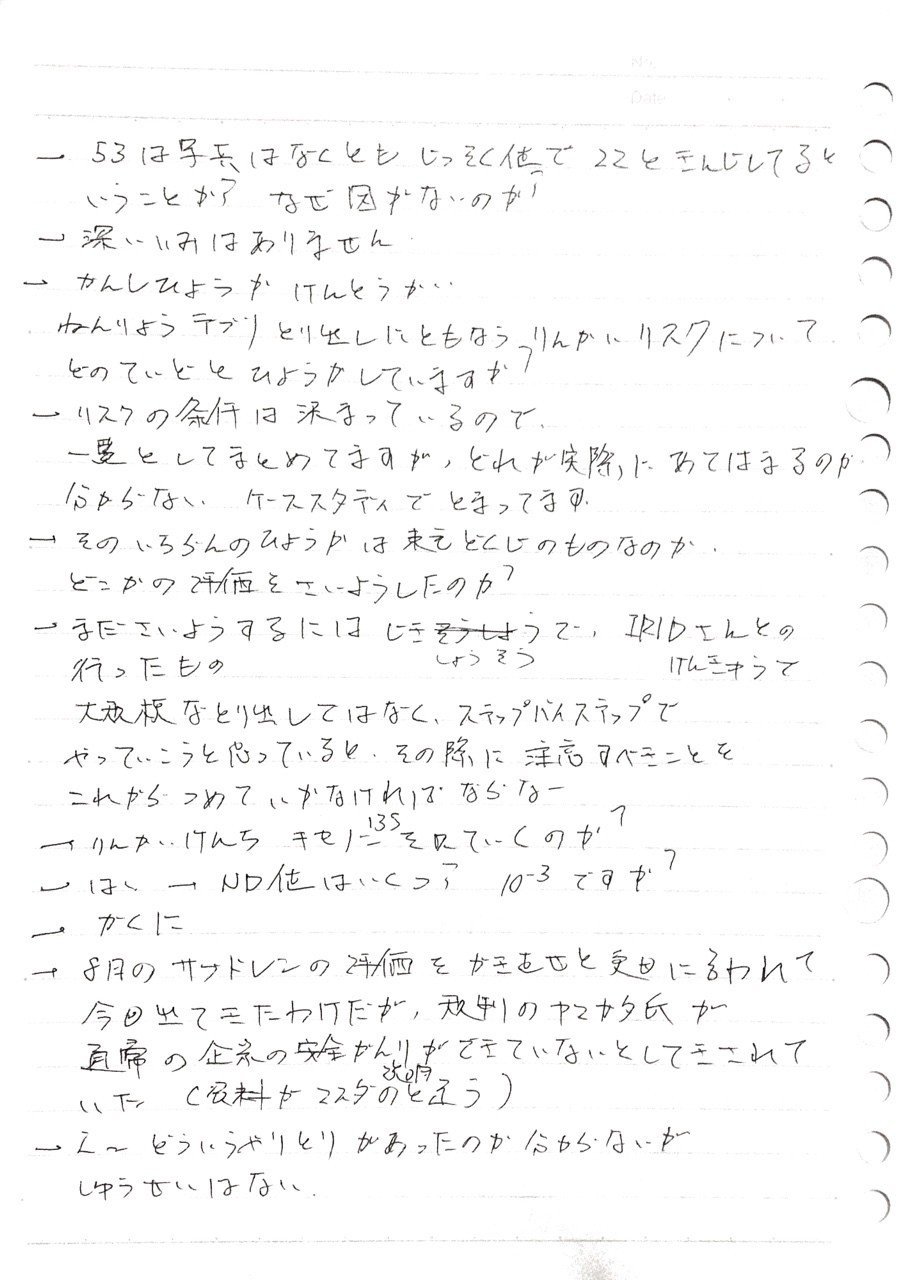 → 53は写真はなくとも じっそく値で 22と きんじしてると
いうことか? なぜ図がないのか?
→ 深いいみはありません
→ かんしひょうか けんとうか…
ねんりょうデブリとり出しにともなうりんかいリスクについて
どのていどと ひょうかしていますか?
→ リスクの条件は決まっているので、
一覧としてまとめてますが、どれが実際にあてはまるのか
分からない ケーススタディでとまってます
→ そのいちらんのひょうかは東電どくじのものなのか.
どこかの評価をさいようしたのか?
→ まださいようするには じき うで、IRIDさんとの
しょうそう けんきゅうで
行ったもの
大規模なとり出しではなく、ステップバイステップで
やっていこうと思っていると、その際に 注意すべきことを
これからつめていかなければならなー
→ りんかいけんち キセノン135を見ていくのか?
→ はい → ND値はいくつ? 10-3ですか?
→ かくに
→ 8月のサブドレンの評価を かき直せと 言われて
今回出てきたわけだが, 規制のヤマガタ氏が
直 の の安全かんりができていないとしてきされて
いた (資料がマスダのと違う)
説明
→ え〜 どういうやりとりがあったのか分からないが
しゅうせいはない.